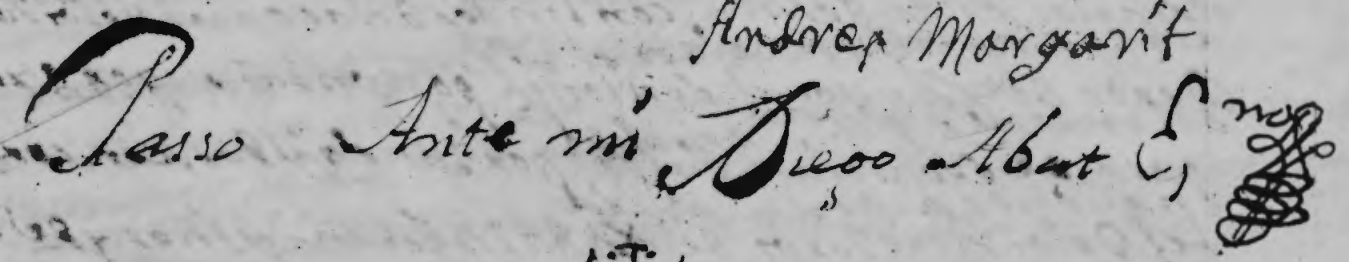 Andrea Margarit
Passo Ante mi Diego Abat Esno